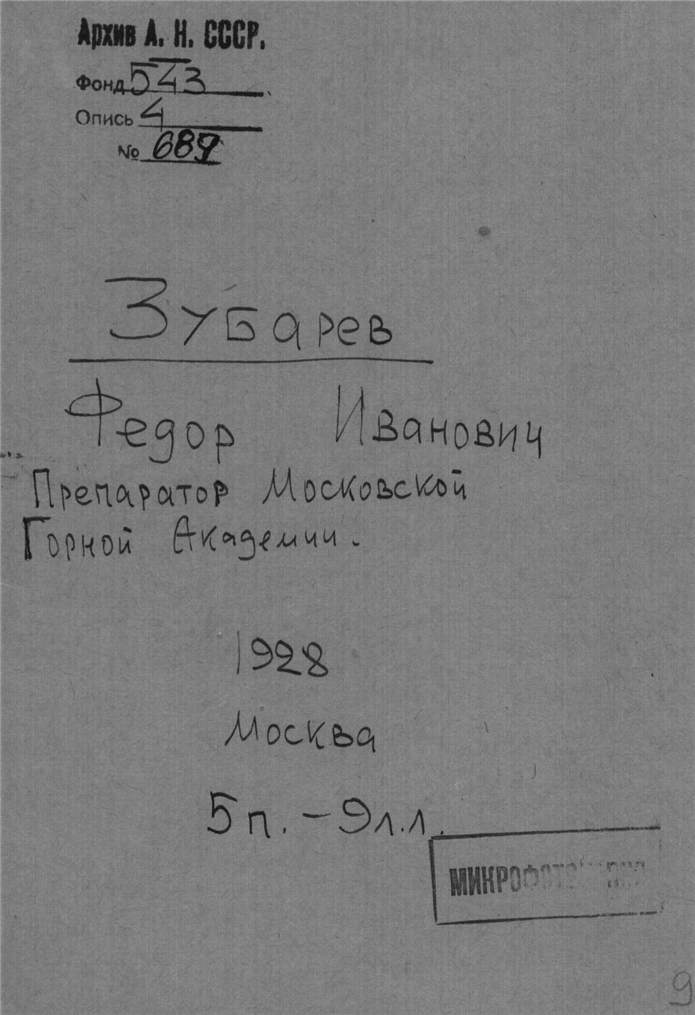 Архив А. Н. СССР.
Фонд 543
Опись 4
№ 687
Зубарев
Федор Иванович
Препаратор Московской
Горной Академии.
1928
Москва
5 п. – 9 л.л.
9